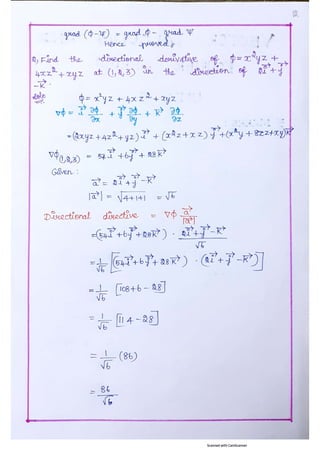 2
grad (φ-ψ) = grad φ - grad ψ
Hence proved
Q, Find the directional derivative of φ = x²yz +
4xz² + xyz at (1,2,3) in the direction of 2i⃗ + j⃗
- k⃗.
Soln
φ = x²yz + 4xz² + xyz
∇φ = i⃗ ∂φ/∂x + j⃗ ∂φ/∂y + k⃗ ∂φ/∂z
= (2xyz + 4z² + yz) i⃗ + (x²z + xz) j⃗ + (x²y + 8zz + xy) k⃗
∇φ(1,2,3) = 54i⃗ + 6j⃗ + 28k⃗
Given :
a⃗ = 2i⃗ + j⃗ - k⃗
|a⃗| = √4+1+1 = √6
Directional directive = ∇φ · a⃗/|a⃗|
= (54i⃗ + 6j⃗ + 28k⃗) · 2i⃗ + j⃗ - k⃗/√6
= 1/√6 [(54i⃗ + 6j⃗ + 28k⃗) · (2i⃗ + j⃗ - k⃗)]
= 1/√6 [108 + 6 - 28]
= 1/√6 [114 - 28]
= 1/√6 (86)
= 86/√6
Scanned with CamScanner